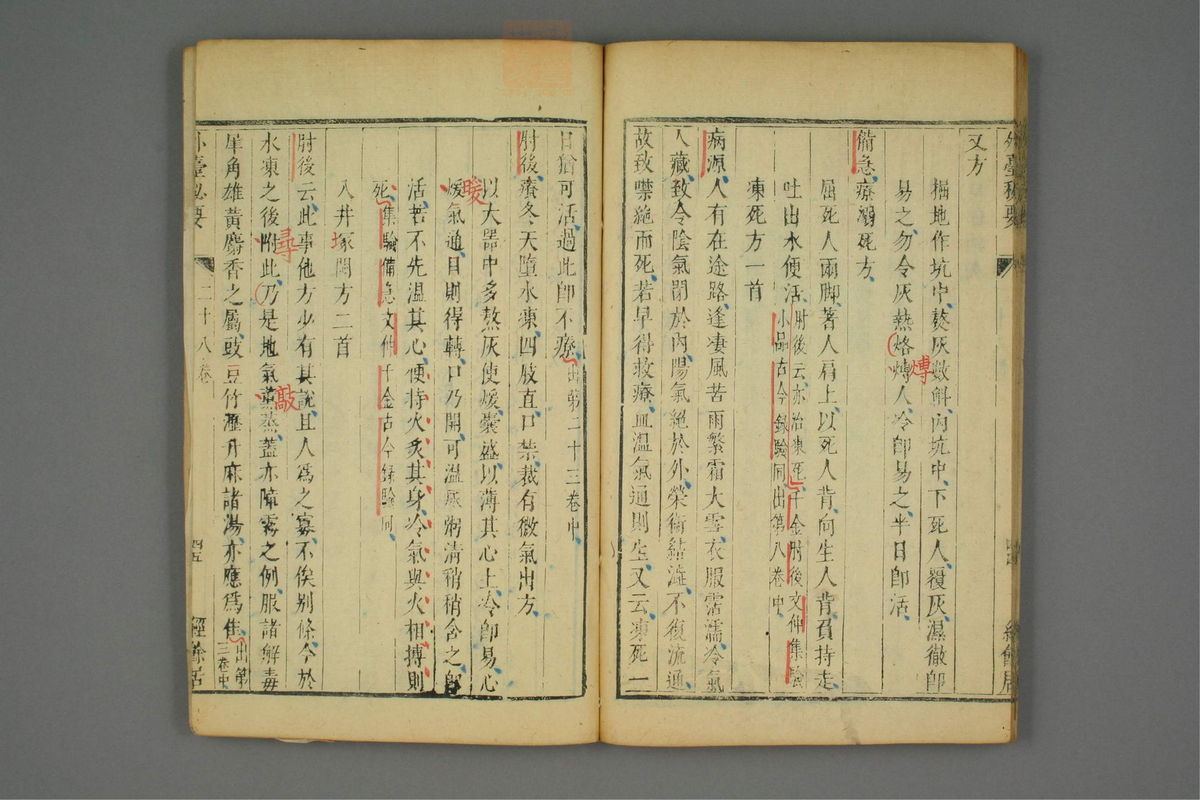 外臺秘要
又方
掘地作坑中熬灰數斛内坑中下死人覆灰濕徹即
易之勿令灰熱烙煿人冷即易之半日即活
煿
備急療溺死方
屈死人兩脚著人肩上以死人背向生人背負持走
吐出水便活肘後云亦治凍死千金肘後文仲集驗
小品古今錄驗同出第八卷中
凍死方一首
病源人有在途路逢凄風苦雨繁霜大雪衣服霑濡冷氣
入藏致令陰氣閉於内陽氣絕於外榮衛結澁不復流通
故致噤絕而死若早得救療血温氣通則生又云凍死一
日猶可活過此即不療出第二十三卷中
肘後療冬天墮水凍四肢直口禁裁有微氣出方
以大器中多熬灰使煖囊盛以薄其心上冷即易心
暖
煖氣通目則得轉口乃開可温尿粥清稍稍含之即
活若不先温其心便持火炙其身冷氣與火相搏則
死集驗備急文仲千金古今錄驗同
入井塚悶方二首
肘後云此事他方少有其說且人爲之寡不俟别條今於
尋
水凍之後附此乃是地氣熏蒸蓋亦障霧之例服諸解毒
敲
犀角雄黄麝香之屬豉豆竹瀝升麻諸湯亦應爲佳出第
三卷中
外臺秘要
二十八卷
四五
經餘居